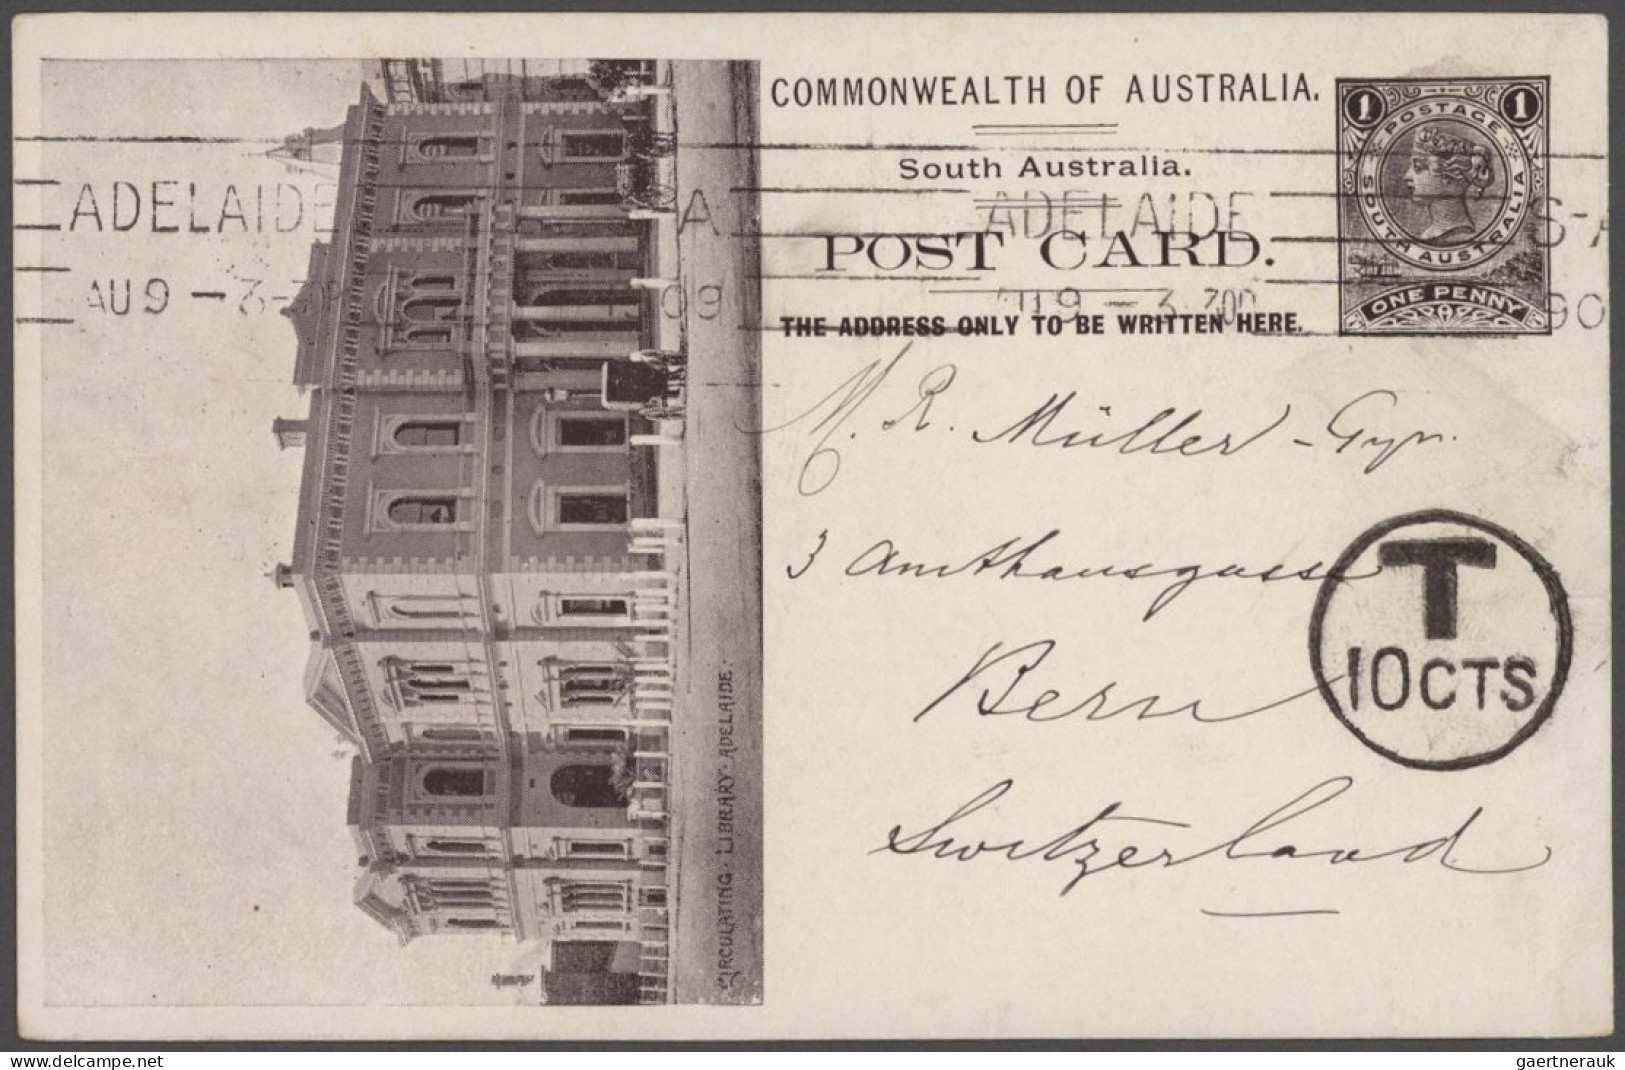 COMMONWEALTH OF AUSTRALIA.
South Australia.
POST CARD.
THE ADDRESS ONLY TO BE WRITTEN HERE.
1 POSTAGE 1
SOUTH AUSTRALIA
ONE PENNY
ADELAIDE A
AU 9 – 3-30 09
ADELAIDE S-A
AU 9 – 3 30P 90
M. R. Müller-Gyr.
3 Amthausgasse
Bern
Switzerland
T
10CTS
CIRCULATING LIBRARY ADELAIDE.
www.delcampe.net
gaertnerauk